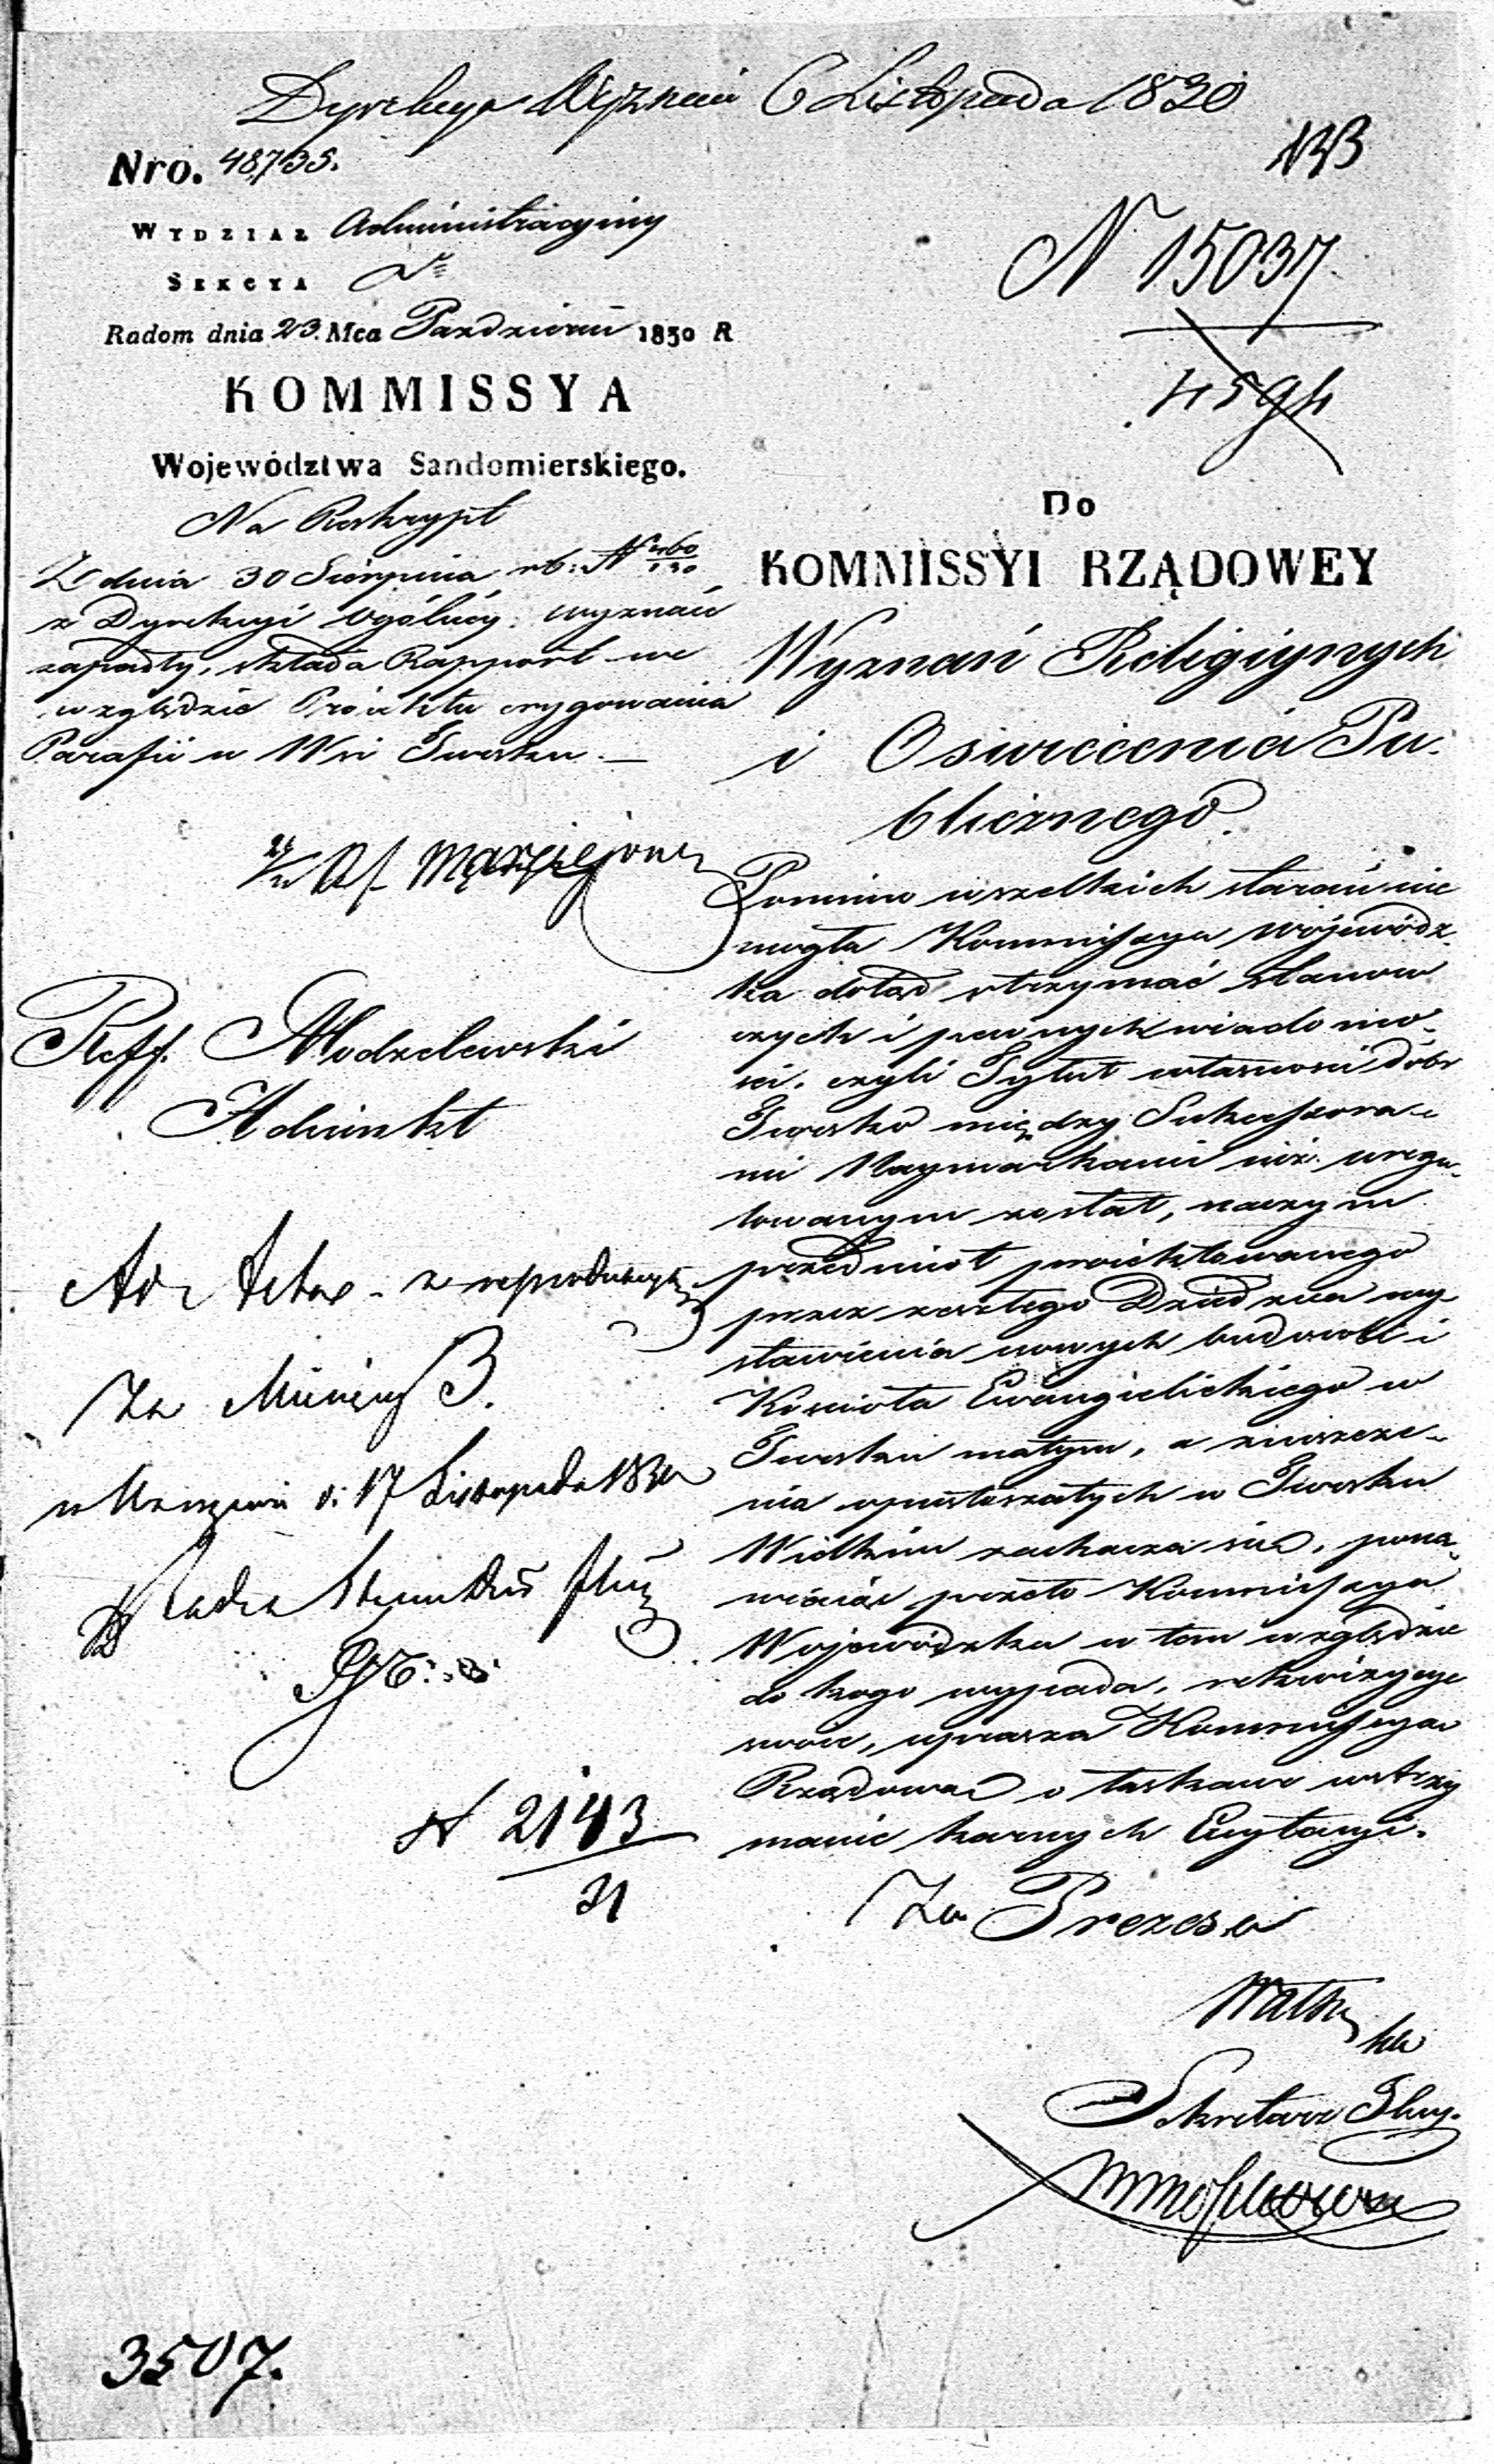 Dyrekcya Wyznań 6 Listopada 1830
133
Nro. 48,735.
WYDZIAŁ Administracyiny
SEKCYA
Radom dnia 23. Mca Pazdziern 1830 R
N 15037
4594
KOMMISSYA
Województwa Sandomierskiego.
Na Reskrypt
Z dnia 30 Sierpnia rb: N
z Dyrekcyi Ogólney wyznań
zapadły, składa Rapport we
względzie Proiektu erygowania
Parafii w Wsi Swesku. —
Reff. Modzelewski
Adiunkt
Ad Acta - z reprodukcyą
Za Ministra
w Warszawie d: 17 Listopada 1830
Radca Stanu
N 2143
31
Do
KOMMISSYI RZĄDOWEY
Wyznań Religiynych
i Oswiecenia Pu-
blicznego.
Pomimo wszelkich starań nie
mogła Kommissya Wojewódz-
ka dotąd otrzymać stanow
czych i pewnych wiadomo-
sci. czyli Tytuł własnosci dóbr
między Sukcessora-
mi iuż uregu-
lowanym został, naczym
przedmiot proiektowanego
przez zeszłego Dziedzica wy-
stawienia nowych budowli i
Koscioła Ewangielickiego w
małym, a zniszcze-
nia opustoszałych w
Wielkim zachacza sie, pona-
wiaiąc przeto Kommissya
Wojewódzka w tem względzie
do kogo wypada, rekwizycye
swoie, uprasza Kommissyą
Rządową o łaskawe wstrzy
manie karnych Excytacyi.
Za Prezesa
Sekretarz Jlny.
3507.